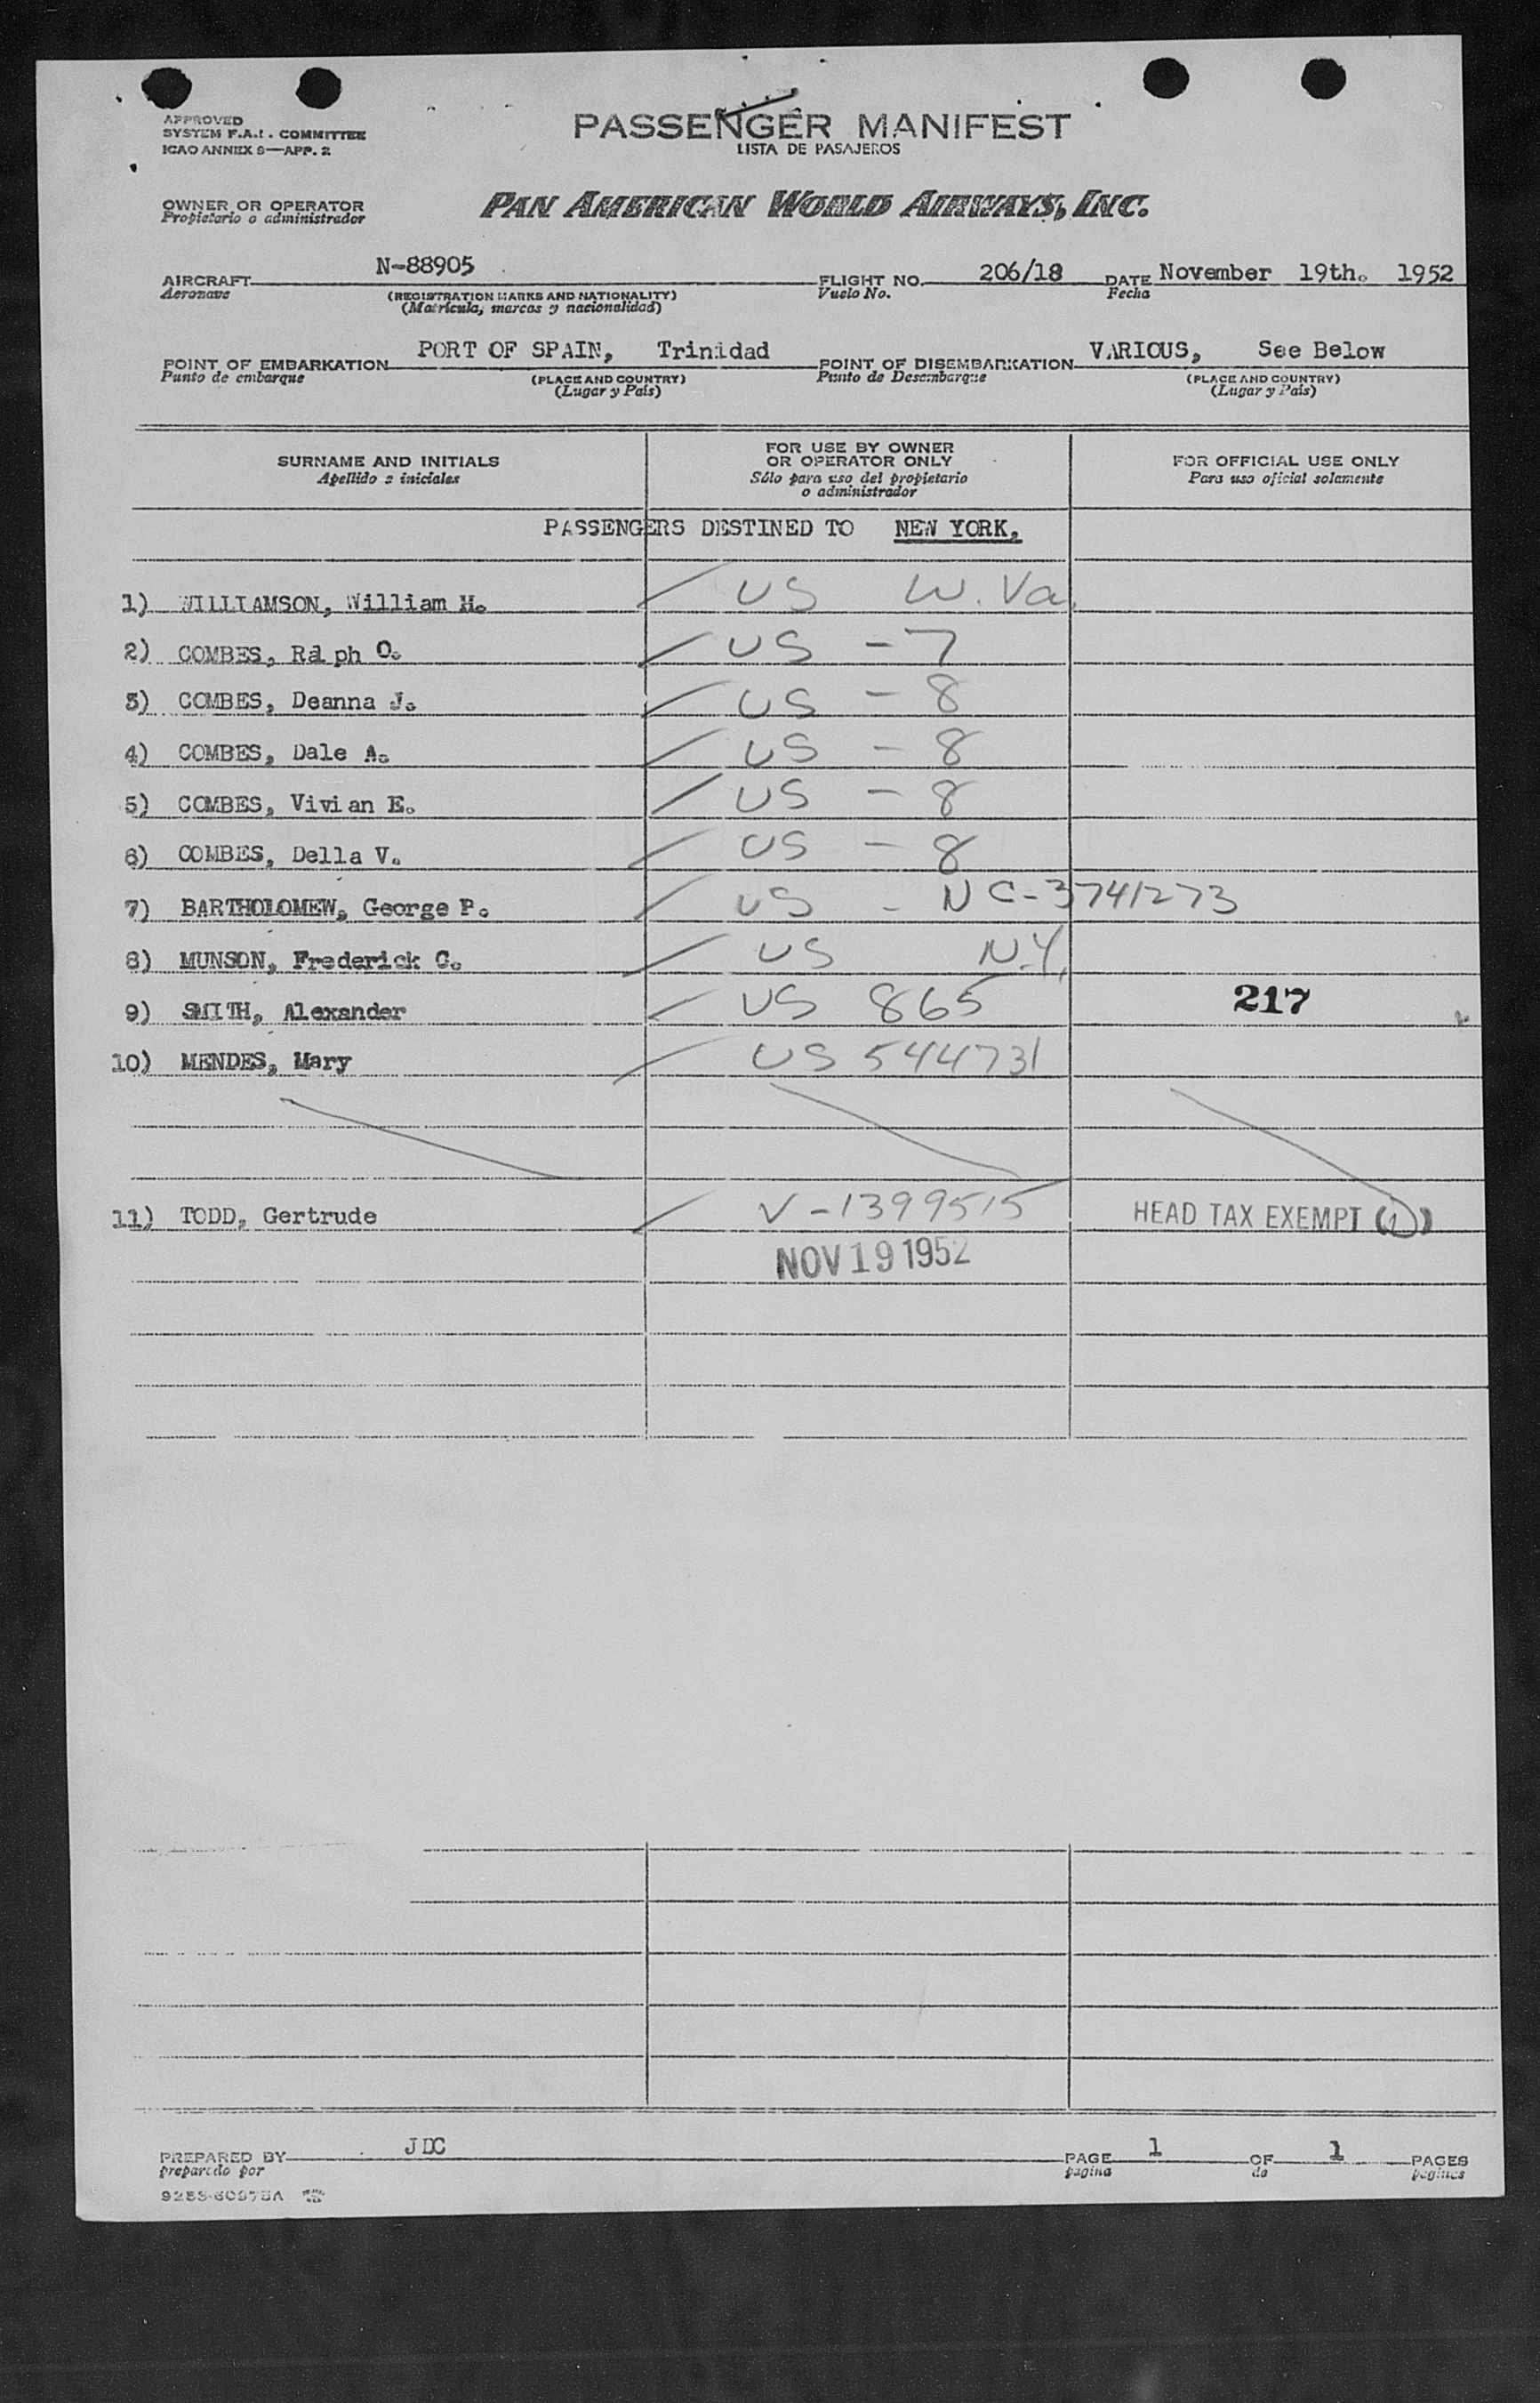 APPROVED
SYSTEM F.A.I. COMMITTEE
ICAO ANNEX 9—APP. 2
PASSENGER MANIFEST
LISTA DE PASAJEROS
OWNER OR OPERATOR
Propietario o administrador
PAN AMERICAN WORLD AIRWAYS, INC.
AIRCRAFT N-88905 FLIGHT NO. 206/18 DATE November 19th. 1952
Aeronave (REGISTRATION MARKS AND NATIONALITY) Vuelo No. Fecha
(Matrícula, marcas y nacionalidad)
POINT OF EMBARKATION PORT OF SPAIN, Trinidad POINT OF DISEMBARKATION VARIOUS, See Below
Punto de embarque (PLACE AND COUNTRY) Punto de Desembarque (PLACE AND COUNTRY)
(Lugar y País) (Lugar y País)
SURNAME AND INITIALS
Apellido e iniciales
FOR USE BY OWNER
OR OPERATOR ONLY
Sólo para uso del propietario
o administrador
FOR OFFICIAL USE ONLY
Para uso oficial solamente
PASSENGERS DESTINED TO NEW YORK.
1) WILLIAMSON, William H. US W. Va.
2) COMBES, Ralph O. US - 7
3) COMBES, Deanna J. US - 8
4) COMBES, Dale A. US - 8
5) COMBES, Vivian E. US - 8
6) COMBES, Della V. US - 8
7) BARTHOLOMEW, George P. US - NC-3741273
8) MUNSON, Frederick C. US N.Y.
9) SMITH, Alexander US 865 217
10) MENDES, Mary US 544731
11) TODD, Gertrude V-1399515 HEAD TAX EXEMPT (1)
NOV 19 1952
PREPARED BY JDC PAGE 1 OF 1 PAGES
preparado por pagina de paginas